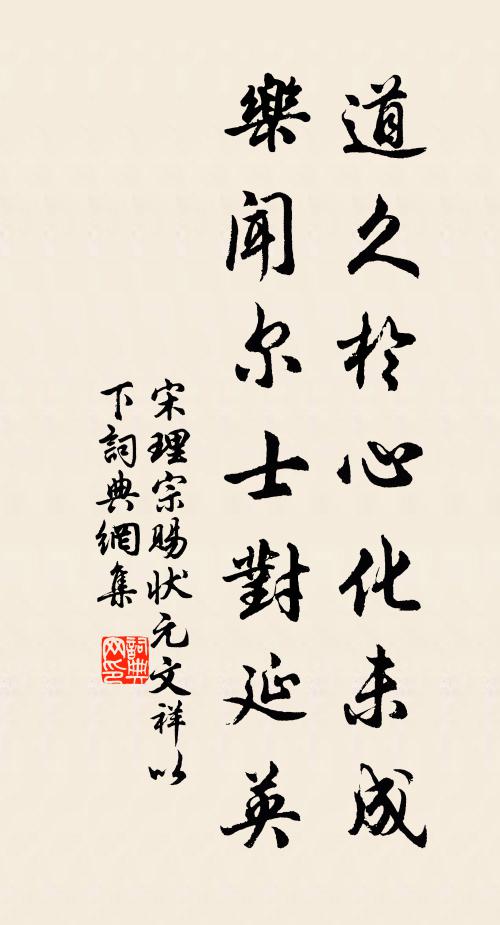 道久於心化未成
樂聞尔士對延英
宋理宗賜状元文祥以
下詞典網集
詞典网印